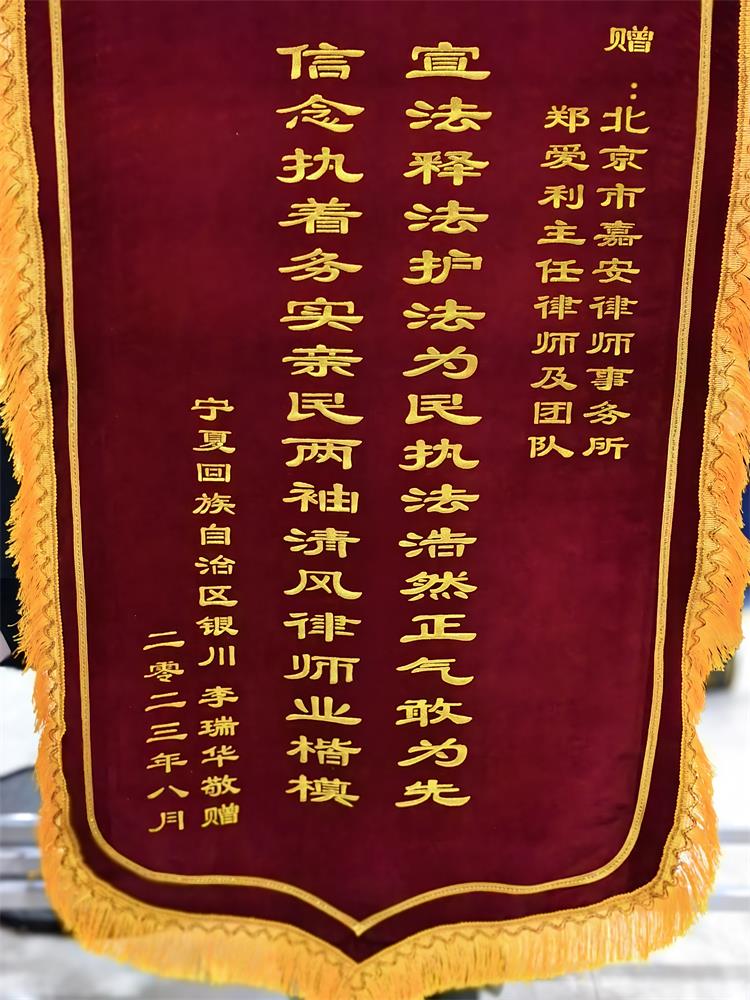 赠：北京市嘉安律师事务所
郑爱利主任律师及团队
宣法释法护法为民执法浩然正气敢为先
信念执着务实亲民两袖清风律师业楷模
宁夏回族自治区银川 李瑞华敬赠
二零二三年八月